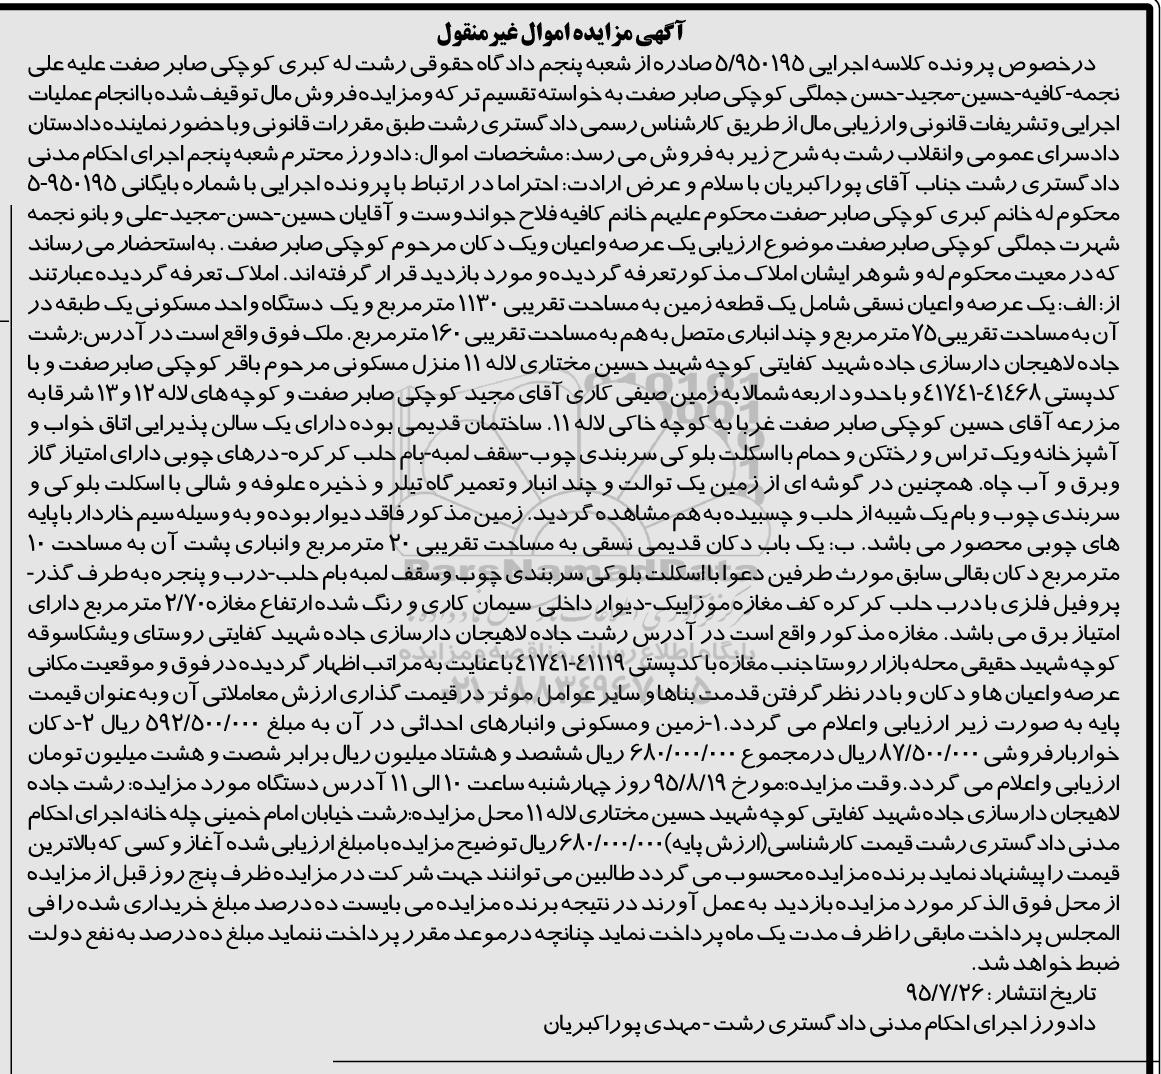 آگهی مزایده اموال غیرمنقول
درخصوص پرونده کلاسه اجرایی ۵/۹۵۰۱۹۵ صادره از شعبه پنجم دادگاه حقوقی رشت له کبری کوچکی صابر صفت علیه علی
نجمه-کافیه-حسین-مجید-حسن جملگی کوچکی صابر صفت به خواسته تقسیم ترکه ومزایده فروش مال توقیف شده باانجام عملیات
اجرایی وتشریفات قانونی وارزیابی مال از طریق کارشناس رسمی دادگستری رشت طبق مقررات قانونی وبا حضور نماینده دادستان
دادسرای عمومی وانقلاب رشت به شرح زیر به فروش می رسد: مشخصات اموال: دادورز محترم شعبه پنجم اجرای احکام مدنی
دادگستری رشت جناب آقای پوراکبریان با سلام و عرض ارادت: احتراما در ارتباط با پرونده اجرایی با شماره بایگانی ۹۵۰۱۹۵-۵
محکوم له خانم کبری کوچکی صابر-صفت محکوم علیهم خانم کافیه فلاح جواندوست و آقایان حسین-حسن-مجید-علی و بانو نجمه
شهرت جملگی کوچکی صابر صفت موضوع ارزیابی یک عرصه واعیان ویک دکان مرحوم کوچکی صابر صفت . به استحضار می رساند
که در معیت محکوم له و شوهر ایشان املاک مذکور تعرفه گردیده و مورد بازدید قرار گرفته اند. املاک تعرفه گردیده عبارتند
از: الف: یک عرصه واعیان نسقی شامل یک قطعه زمین به مساحت تقریبی ۱۱۳۰ متر مربع و یک دستگاه واحد مسکونی یک طبقه در
آن به مساحت تقریبی۷۵ متر مربع و چند انباری متصل به هم به مساحت تقریبی ۱۶۰ مترمربع. ملک فوق واقع است در آدرس:رشت
جاده لاهیجان دارسازی جاده شهید کفایتی کوچه شهید حسین مختاری لاله ۱۱ منزل مسکونی مرحوم باقر کوچکی صابرصفت و با
کدپستی ۴۱۴۶۸-۴۱۷۴۱ و با حدود اربعه شمالا به زمین صیفی کاری آقای مجید کوچکی صابر صفت و کوچه های لاله ۱۲ و ۱۳ شرقا به
مزرعه آقای حسین کوچکی صابر صفت غربا به کوچه خاکی لاله ۱۱. ساختمان قدیمی بوده دارای یک سالن پذیرایی اتاق خواب و
آشپزخانه ویک تراس و رختکن و حمام بااسکلت بلوکی سربندی چوب-سقف لمبه-بام حلب کرکره-درهای چوبی دارای امتیاز گاز
وبرق و آب چاه. همچنین در گوشه ای از زمین یک توالت و چند انبار و تعمیرگاه تیلر و ذخیره علوفه و شالی با اسکلت بلوکی و
سربندی چوب و بام یک شیبه از حلب و چسبیده به هم مشاهده گردید. زمین مذکور فاقد دیوار بوده و به وسیله سیم خاردار با پایه
های چوبی محصور می باشد. ب: یک باب دکان قدیمی نسقی به مساحت تقریبی ۲۰ مترمربع وانباری پشت آن به مساحت ۱۰
مترمربع دکان بقالی سابق مورث طرفین دعوا بااسکلت بلوکی سربندی چوب وسقف لمبه بام حلب-درب و پنجره به طرف گذر-
پروفیل فلزی با درب حلب کرکره کف مغازه موزاییک-دیوار داخلی سیمان کاری و رنگ شده ارتفاع مغازه ۲/۷۰ متر مربع دارای
امتیاز برق می باشد. مغازه مذکور واقع است در آدرس رشت جاده لاهیجان دارسازی جاده شهید کفایتی روستای ویشکاسوقه
کوچه شهید حقیقی محله بازار روستا جنب مغازه با کدپستی ۴۱۱۱۹-۴۱۷۴۱ با عنایت به مراتب اظهار گردیده در فوق و موقعیت مکانی
عرصه واعیان ها و دکان و با در نظر گرفتن قدمت بناها و سایر عوامل موثر در قیمت گذاری ارزش معاملاتی آن وبه عنوان قیمت
پایه به صورت زیر ارزیابی واعلام می گردد.۱-زمین ومسکونی وانبارهای احداثی در آن به مبلغ ۵۹۲/۵۰۰/۰۰۰ ریال ۲-دکان
خواربارفروشی ۸۷/۵۰۰/۰۰۰ ریال درمجموع ۶۸۰/۰۰۰/۰۰۰ ریال ششصد و هشتاد میلیون ریال برابر شصت و هشت میلیون تومان
ارزیابی واعلام می گردد.وقت مزایده:مورخ ۹۵/۸/۱۹ روز چهارشنبه ساعت ۱۰ الی ۱۱ آدرس دستگاه مورد مزایده: رشت جاده
لاهیجان دارسازی جاده شهید کفایتی کوچه شهید حسین مختاری لاله ۱۱ محل مزایده:رشت خیابان امام خمینی چله خانه اجرای احکام
مدنی دادگستری رشت قیمت کارشناسی(ارزش پایه)۶۸۰/۰۰۰/۰۰۰ ریال توضیح مزایده با مبلغ ارزیابی شده آغاز و کسی که بالاترین
قیمت را پیشنهاد نماید برنده مزایده محسوب می گردد طالبین می توانند جهت شرکت در مزایده ظرف پنج روز قبل از مزایده
از محل فوق الذکر مورد مزایده بازدید به عمل آورند در نتیجه برنده مزایده می بایست ده درصد مبلغ خریداری شده را فی
المجلس پرداخت مابقی را ظرف مدت یک ماه پرداخت نماید چنانچه در موعد مقرر پرداخت ننماید مبلغ ده درصد به نفع دولت
ضبط خواهد شد.
تاریخ انتشار : ۹۵/۷/۲۶
دادورز اجرای احکام مدنی دادگستری رشت -مهدی پوراکبریان
ParsNamadData
پایگاه اطلاع رسانی مناقصه و مزایده